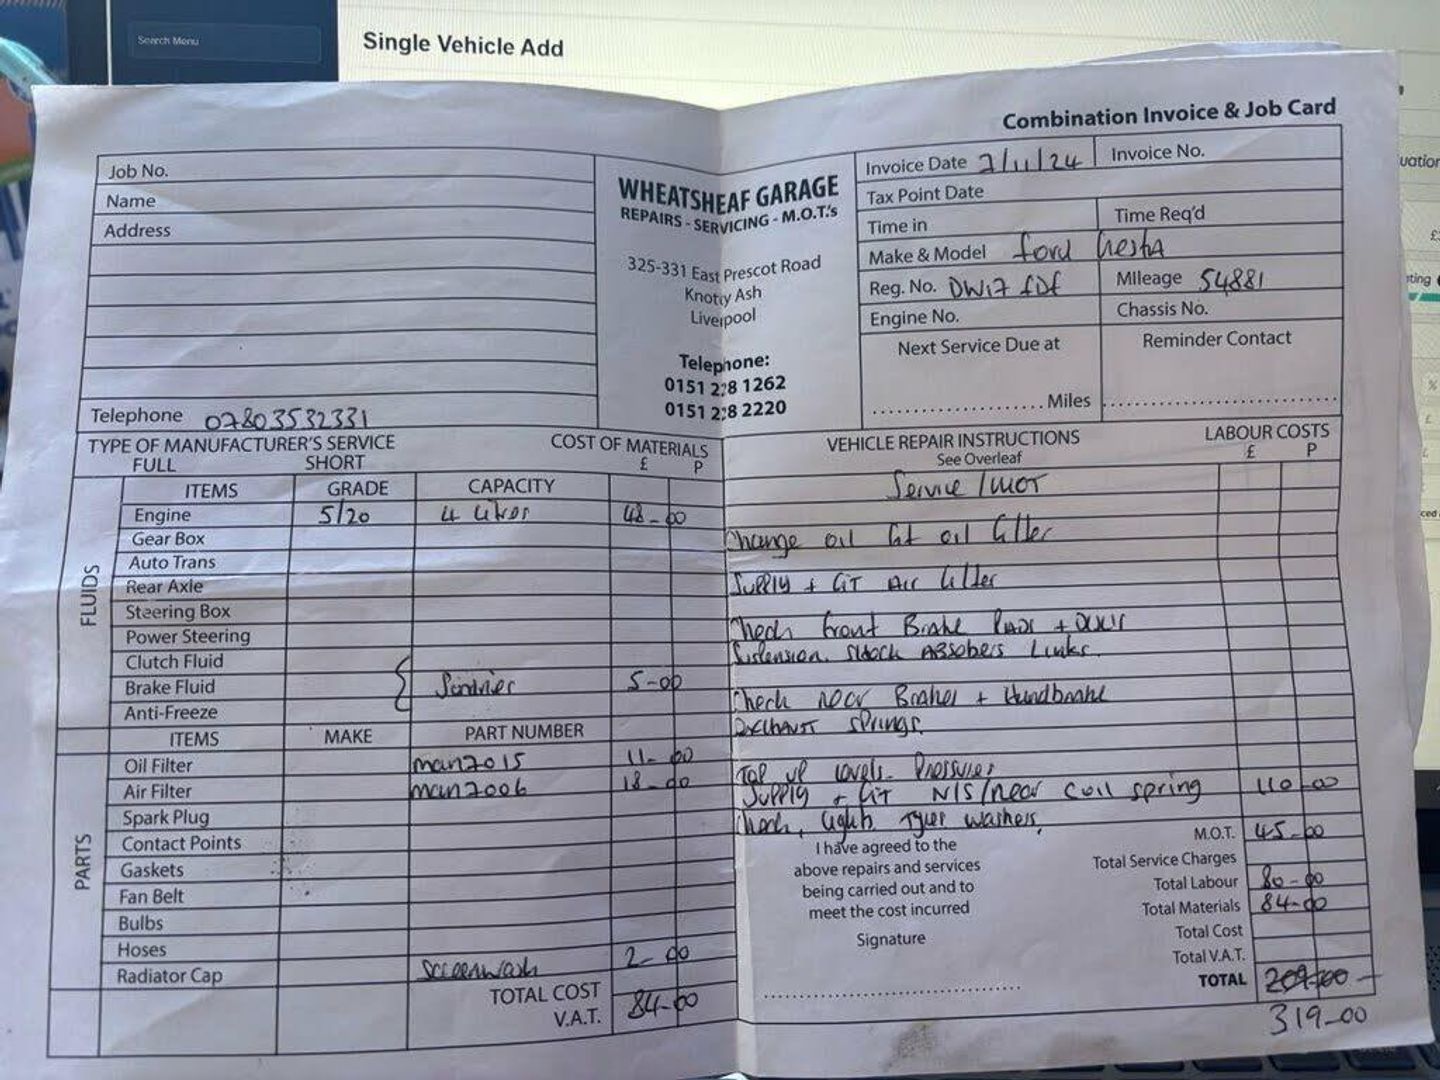 Search Menu
Single Vehicle Add
Combination Invoice & Job Card
Job No.
Name
Address
Telephone 07803532331
WHEATSHEAF GARAGE
REPAIRS - SERVICING - M.O.T.'s
325-331 East Prescot Road
Knotty Ash
Liverpool
Telephone:
0151 228 1262
0151 228 2220
Invoice Date 7/11/24 Invoice No.
Tax Point Date
Time in Time Req'd
Make & Model Ford Fiesta
Reg. No. DW17 FDF Mileage 54881
Engine No. Chassis No.
Next Service Due at Reminder Contact
Miles
TYPE OF MANUFACTURER'S SERVICE COST OF MATERIALS
FULL SHORT £ P
ITEMS GRADE CAPACITY
FLUIDS
Engine 5/20 4 Litres 48-00
Gear Box
Auto Trans
Rear Axle
Steering Box
Power Steering
Clutch Fluid
Brake Fluid 5-00
Anti-Freeze
ITEMS MAKE PART NUMBER
PARTS
Oil Filter man7015 11-00
Air Filter man7006 18-00
Spark Plug
Contact Points
Gaskets
Fan Belt
Bulbs
Hoses
Radiator Cap Screenwash 2-00
TOTAL COST 84-00
V.A.T.
VEHICLE REPAIR INSTRUCTIONS LABOUR COSTS
See Overleaf £ P
Service/MOT
Change oil fit oil filter
Supply + fit Air filter
Check front Brake Pads + Discs
Suspension Shock Absobers Links.
Check rear Brakes + Handbrake
Exhaust springs.
Top up levels. Pressures
Supply + fit N/S/Rear coil spring 110-00
Check, lights Tyres washers,
I have agreed to the
above repairs and services
being carried out and to
meet the cost incurred
Signature
M.O.T. 45-00
Total Service Charges
Total Labour 80-00
Total Materials 84-00
Total Cost
Total V.A.T.
TOTAL 209-00
319-00